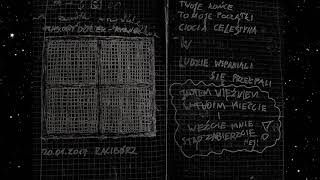 20.01.2017 RACIBÓRZ
TWOJE KOŃCE
TO MOJE POCZĄTKI
CIOCIA CELESTYNA
LUDZIE WSPANIALI
SIĘ PRZEPALI
JESTEM WIĘŹNIEM
W TWOIM MIEŚCIE
I
WEŹCIE MNIE
STĄD ZABIERZCIE
HEJ!